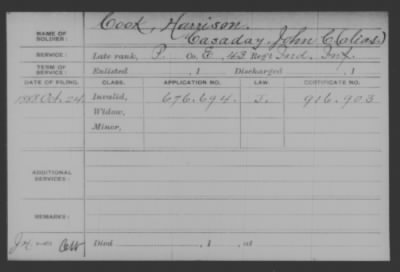 NAME OF SOLDIER: Cook, Harrison.
Casaday, John C (alias.)
SERVICE: Late rank, P. Co. E, 43 Reg't Ind. Inf.
TERM OF SERVICE: Enlisted , 1 Discharged , 1
DATE OF FILING. CLASS. APPLICATION NO. LAW. CERTIFICATE NO.
1888 Oct. 24. Invalid, 676.694. J. 916.903
Widow,
Minor,
ADDITIONAL SERVICES:
REMARKS:
Died , 1 , at